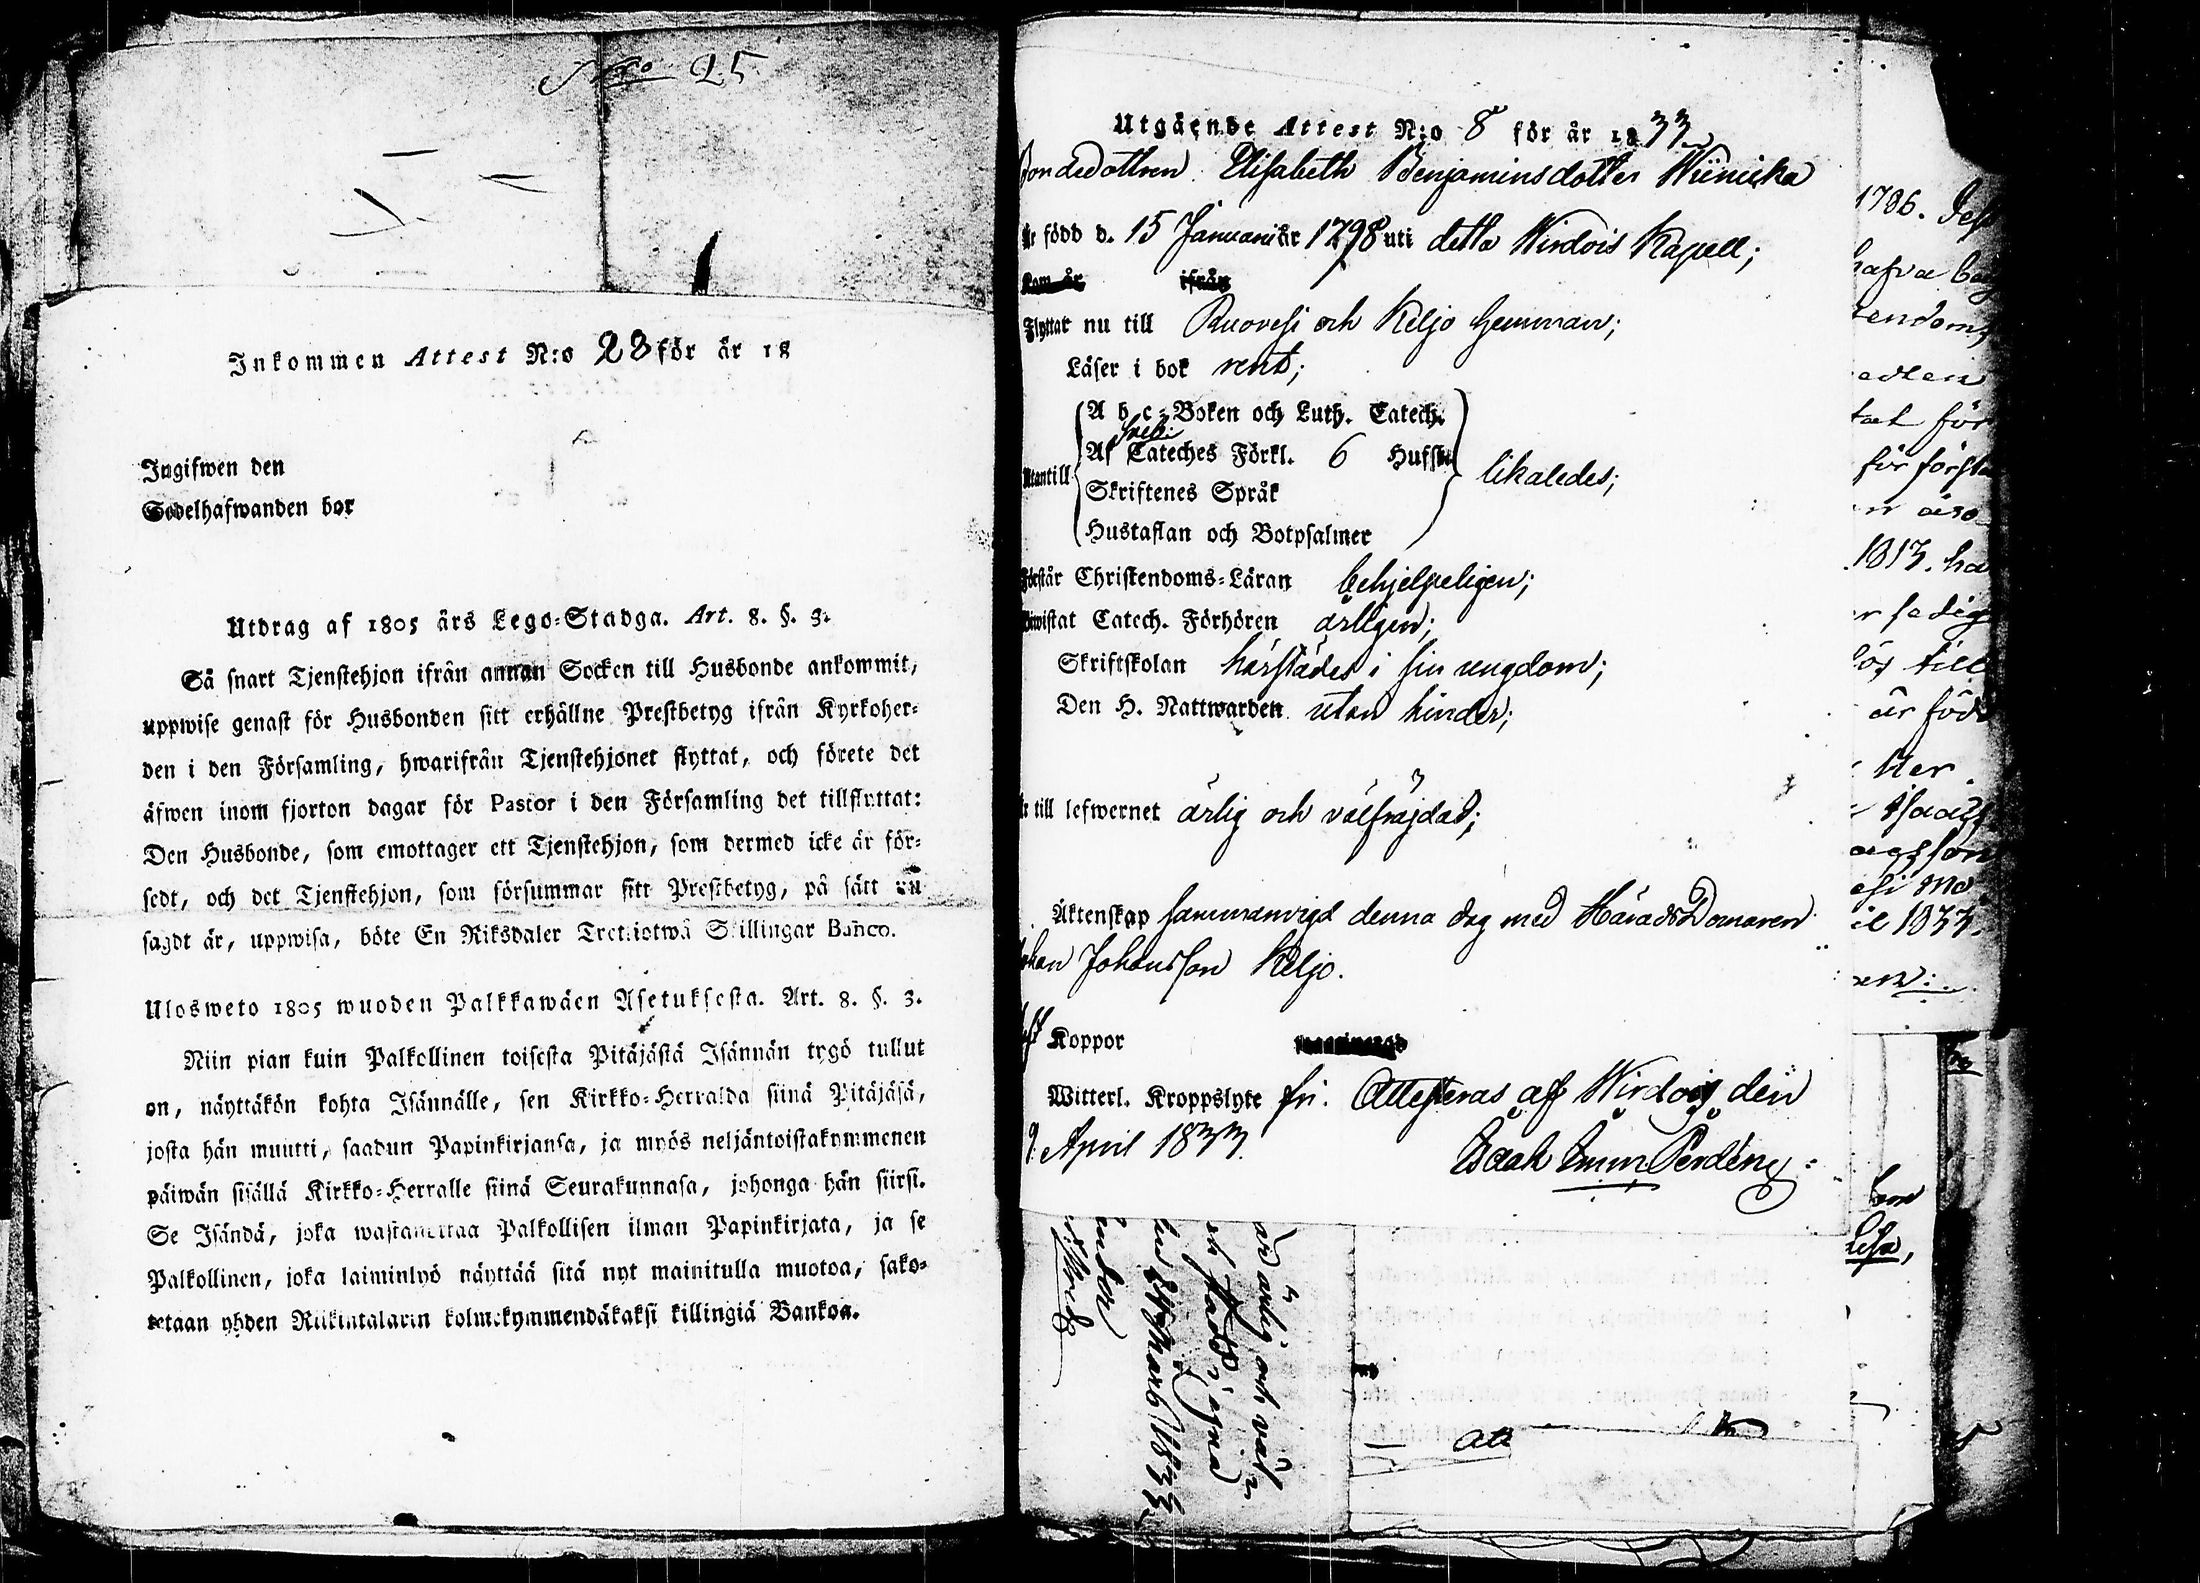 Nro 25.
Inkommen Attest N:o 23 för år 18
Ingifwen den
Sedelhafwanden bor
Utdrag af 1805 års Lego-Stadga. Art. 8. §. 3.
Så snart Tjenstehjon ifrån annan Socken till Husbonde ankommit,
uppwise genast för Husbonden sitt erhållne Prestbetyg ifrån Kyrkoher-
den i den Församling, hwarifrån Tjenstehjonet flyttat, och förete det
äfwen inom fjorton dagar för Pastor i den Församling det tillflyttat:
Den Husbonde, som emottager ett Tjenstehjon, som dermed icke är för-
sedt, och det Tjenstehjon, som försummar sitt Prestbetyg, på sätt nu
sagdt är, uppwisa, böte En Riksdaler Trettiotwå Skillingar Banco.
Ulosweto 1805 wuoden Palkkawäen Asetuksesta. Art. 8. §. 3.
Niin pian kuin Palkollinen toisesta Pitäjästä Isännän tygö tullut
on, näyttäkön kohta Isännälle, sen Kirkko-Herralda siinä Pitäjäsä,
josta hän muutti, saadun Papinkirjansa, ja myös neljäntoistakymmenen
päiwän sisällä Kirkko-Herralle siinä Seurakunnasa, johonga hän siirsi.
Se Isändä, joka wastanottaa Palkollisen ilman Papinkirjata, ja se
Palkollinen, joka laiminlyö näyttää sitä nyt mainitulla muotoa, sako-
tetaan yhden Riikintalarin kolmekymmendäkaksi killingiä Bankoa.
Utgående Attest N:o 8 för år 1833.
Bondedottren Elisabeth Benjaminsdotter Wiinicka
är född d. 15 Januarii år 1798 uti detta Wirdois Kapell;
Kom år ifrån
Flyttar nu till Ruovesi och Keljo hemman;
Läser i bok rent;
A b c-Boken och Luth. Catech.
Sveb:
Af Cateches Förkl. 6 Hufst.
Utantill likaledes;
Skriftenes Språk
Hustaflan och Botpsalmer
Förstår Christendoms-Läran behjelpeligen;
Biwistat Catech. Förhören årligen;
Skriftskolan härstädes i sin ungdom;
Den H. Nattwarden utan hinder;
är till lefwernet ärlig och välfräjdad;
Äktenskap sammanvigd denna dag med HäradsDomaren
Johan Johansson Keljo.
Haft Koppor
Witterl. Kroppslyte fri. Attesteras af Wirdois den
9 April 1833.
Isaak Imm. Perdén
1786.
hafva
tendoms
för
för första
1813. ha
till
är född
1833.
ärlig och väl-
1833
Att